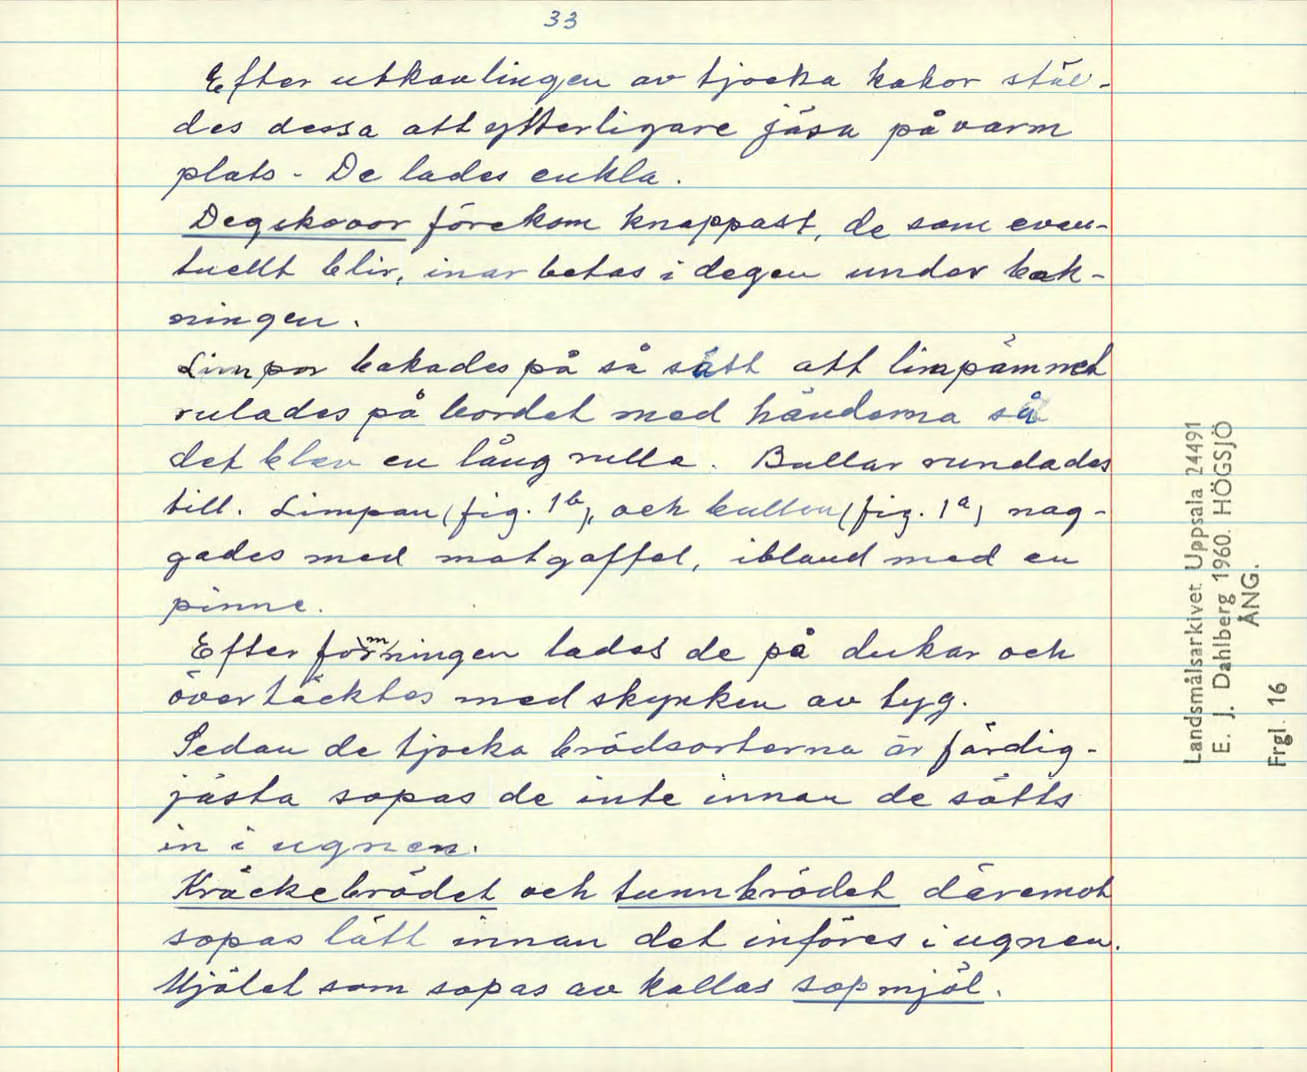 33
Efter utkavlingen av tjocka kakor stäl-
des dessa att ytterligare jäsa på varm
plats - De lades enkla.
Degskovor förekom knappast, de som even-
tuellt blir, inarbetas i degen under bak-
ningen.
Limpor bakades på så sätt att limpämnet
rulades på bordet med händerna så
det blev en lång rulle. Bullar rundades
till. Limpan (fig. 1b), och bullen (fig. 1a) nag-
gades med matgaffel, ibland med en
pinne.
Efter formningen lades de på dukar och
övertäcktes med skynken av tyg.
Sedan de tjocka brödsorterna är färdig-
jästa sopas de inte innan de sätts
in i ugnen.
Kräckebrödet och tunnbrödet däremot
sopas lätt innan det införes i ugnen.
Mjölet som sopas av kallas sopmjöl.
Landsmålsarkivet Uppsala 24491
E. J. Dahlberg 1960. HÖGSJÖ
ÅNG.
Frgl. 16